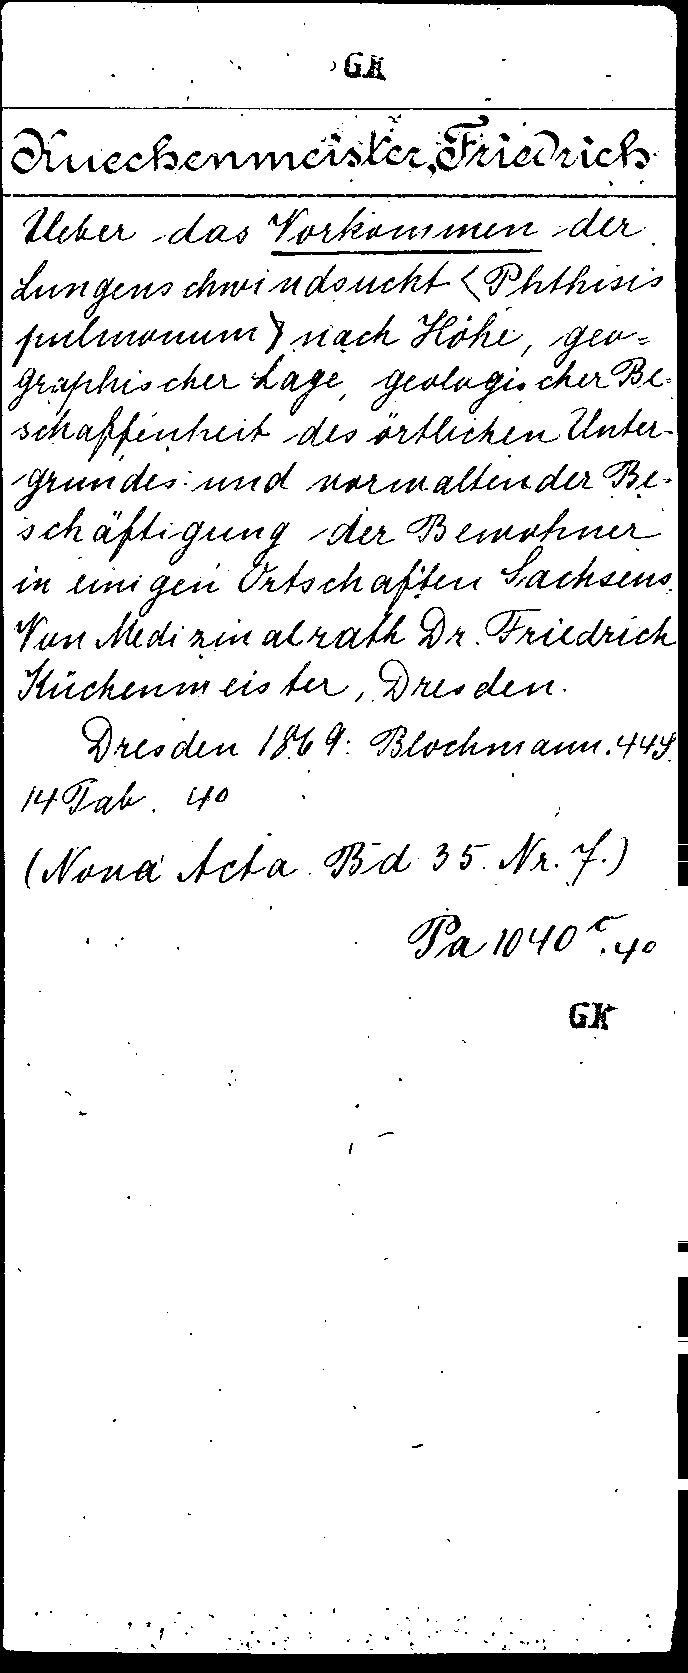 GK
Kuechenmeister, Friedrich
Ueber das Vorkommen der
Lungenschwindsuckt <Phthisis
pulmonum> nach Höhe, geo=
graphischer Lage, geologischer Be-
schaffenheit des örtlichen Unter-
grundes und vorwaltender Be-
schäftigung der Bewohner
in einigen Ortschaften Sachsens.
Von Medizinalrath Dr. Friedrich
Küchenmeister, Dresden.
Dresden 1869: Blochmann. 44 S.
14 Tab. 4o
(Nova Acta Bd 35. Nr. 7.)
Pa 1040 c. 4o
GK